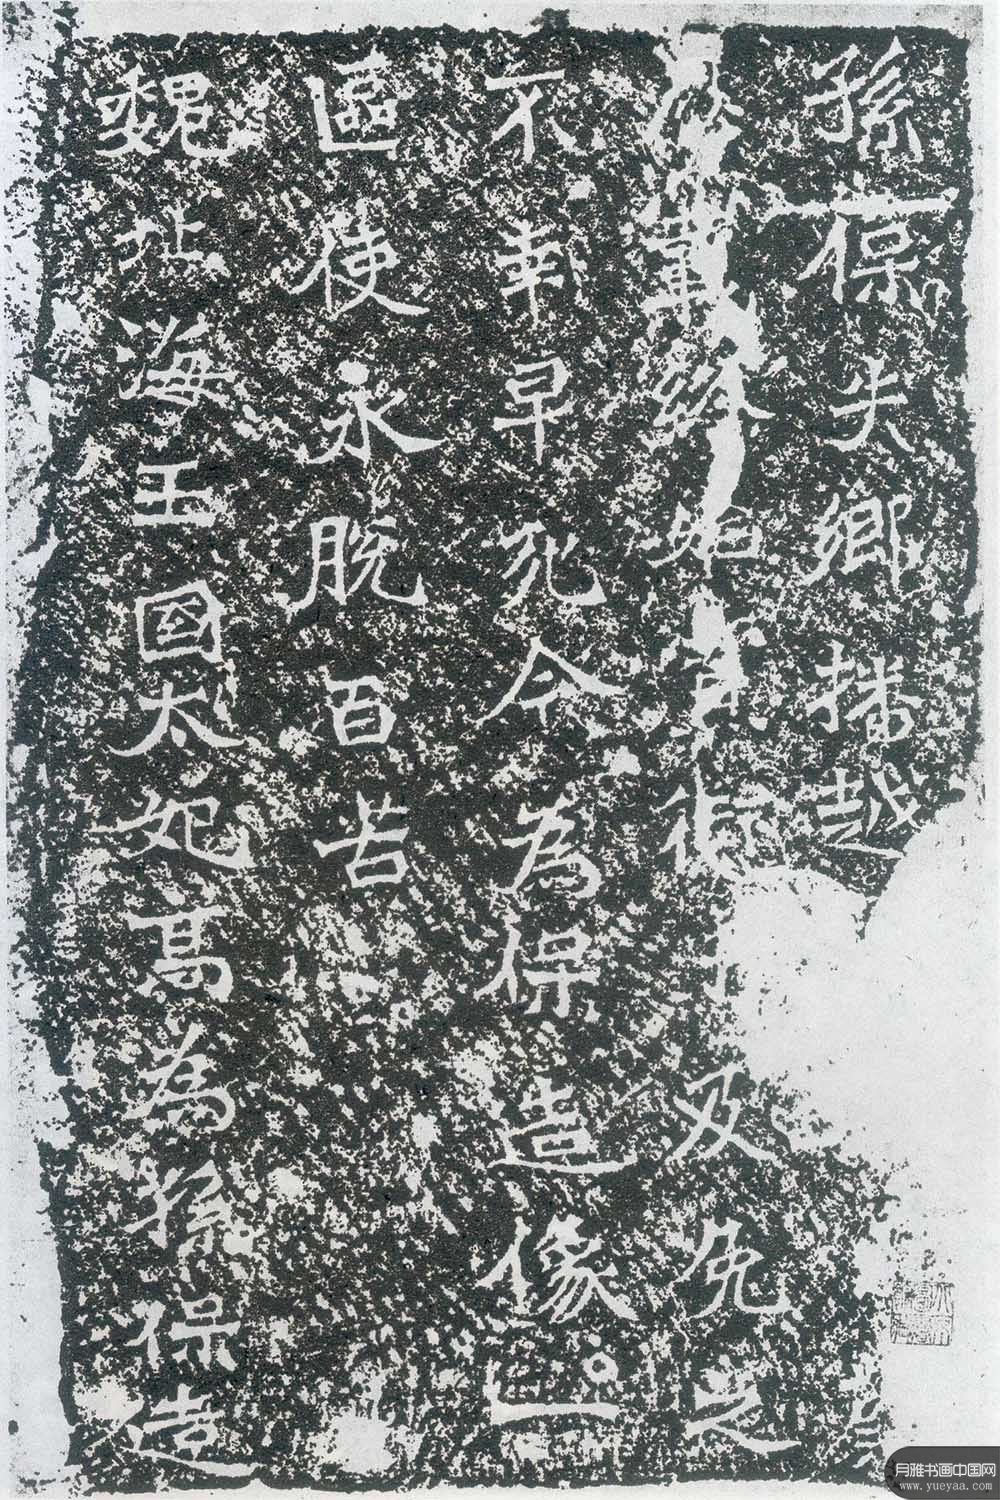 孫保失鄉播越
始 及免之
不幸早死今為保造像一
區使永脫百苦
魏北海王國太妃高為孫保造
月雅书画中国网
www.yueyaa.com